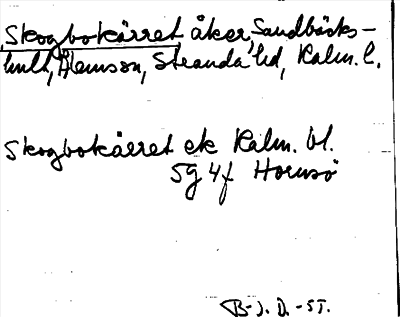 Skogbokärret åker, Sandbäcks-
hult, Ålemson, Stranda hd, Kalm. l.
Skogbokärret ek Kalm. bl.
5g 4f Hornsö
B-J. D. -55.